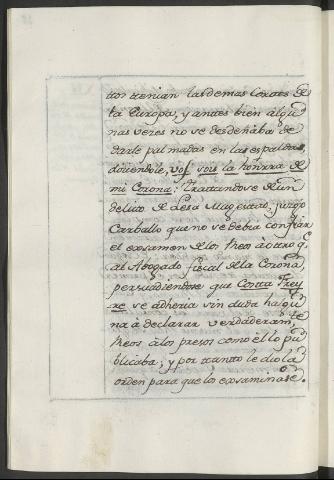 tros tenian las demas Coxtes de
la Europa, y antes bien algu
nas veces no se desdeñaba de
darle palmadas en las espaldas,
diciendole, vos sois la honrra de
mi Corona: Trattandose de un
delito de Lesa Magestad, juzgo
Carballo que no se debia confiar
el exsamen de los Reos à otro q.e
al Abogado fiscal de la Corona,
persuadiendose que Costa Frey
re se adheria sin duda
à declarar verdaderam.te
Reos à los presos como el lo pu
blicaba; y por tantto le dio la
orden para que los exsaminase.